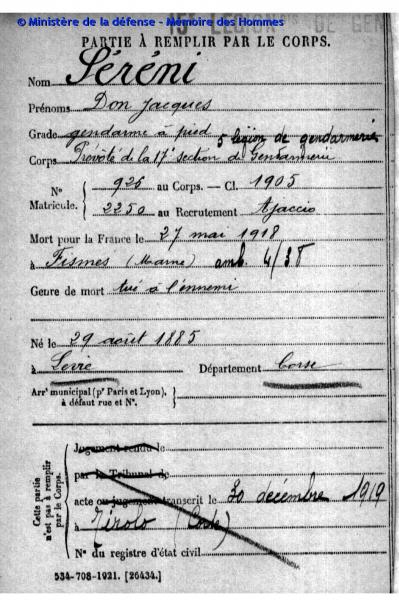 © Ministère de la défense - Mémoire des Hommes
PARTIE À REMPLIR PAR LE CORPS.
Nom Séréni
Prénoms Don Jacques
Grade gendarme à pied 5 légion de gendarmerie
Corps Prévôté de la 17e section de Gendarmerie
N° Matricule. { 926 au Corps. — Cl. 1905
2250 au Recrutement Ajaccio
Mort pour la France le 27 mai 1918
à Fismes (Marne) amb. 4/38
Genre de mort tué à l'ennemi
Né le 29 août 1885
à Levie Département Corse
Arr' municipal (pr Paris et Lyon), à défaut rue et N°. }
Cette partie n'est pas à remplir par le Corps.
Jugement rendu le
par le Tribunal de
acte ou jugement transcrit le 30 décembre 1919
à (Corse)
N° du registre d'état civil
534-708-1921. [26434.]